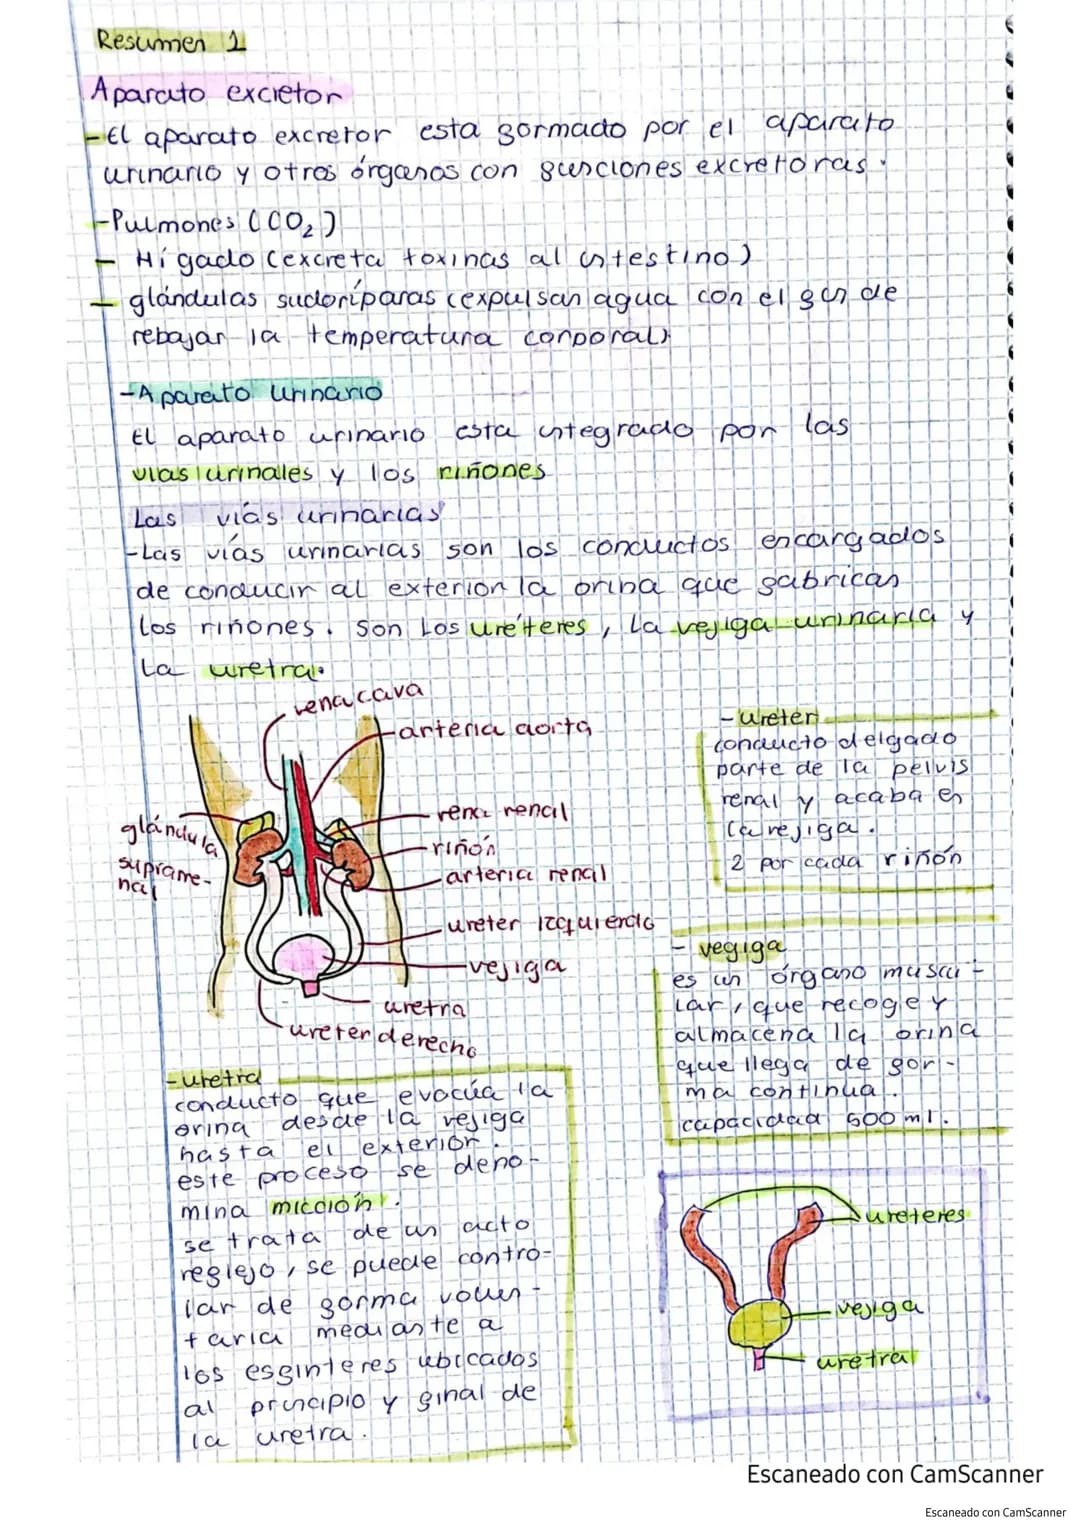 Resumen 1
Aparato excretor
-El aparato excretor esta formado por el aparato
urinario y otros órganos con funciones excretoras.
-Pulmones (CO₂)
- Hígado (excreta toxinas al intestino)
- glándulas sudoríparas (expulsan agua con el fin de
rebajar la temperatura corporal)
-Aparato urinario
El aparato urinario esta integrado por las
vias urinales y los riñones
Las vías urinarias
-Las vías urinarias son los conductos encargados
de conducir al exterior la orina que fabrican
los riñones. Son los uréteres, la vejiga urinaria y
la uretra.
vena cava
arteria aorta
vena renal
riñón
arteria renal
glándula
suprarre-
nal
ureter izquierdo
vejiga
uretra
ureter derecho
-ureter
conducto delgado
parte de la pelvis
renal y acaba en
la vejiga.
2 por cada riñón
- vegiga
es un órgano muscu-
lar, que recoge y
almacena la orina
que llega de for-
ma continua.
capacidad 500 ml.
-uretra
conducto que evacúa la
orina desde la vejiga
hasta el exterior.
este proceso se deno-
mina micción.
se trata de un acto
reflejo, se puede contro-
lar de forma volun-
taria mediante a
los esfinteres ubicados
al principio y final de
la uretra.
ureteres
vejiga
uretra
Escaneado con CamScanner
Escaneado con CamScanner